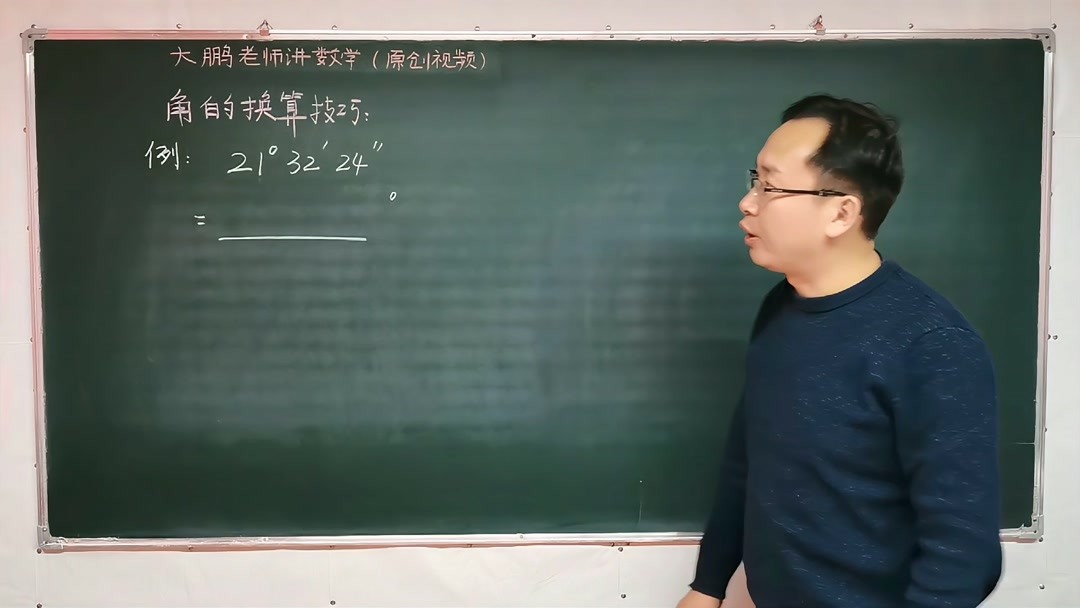 大鹏老师讲数学(原创视频)
角的换算技巧:
例: 21°32′24″
= ______°